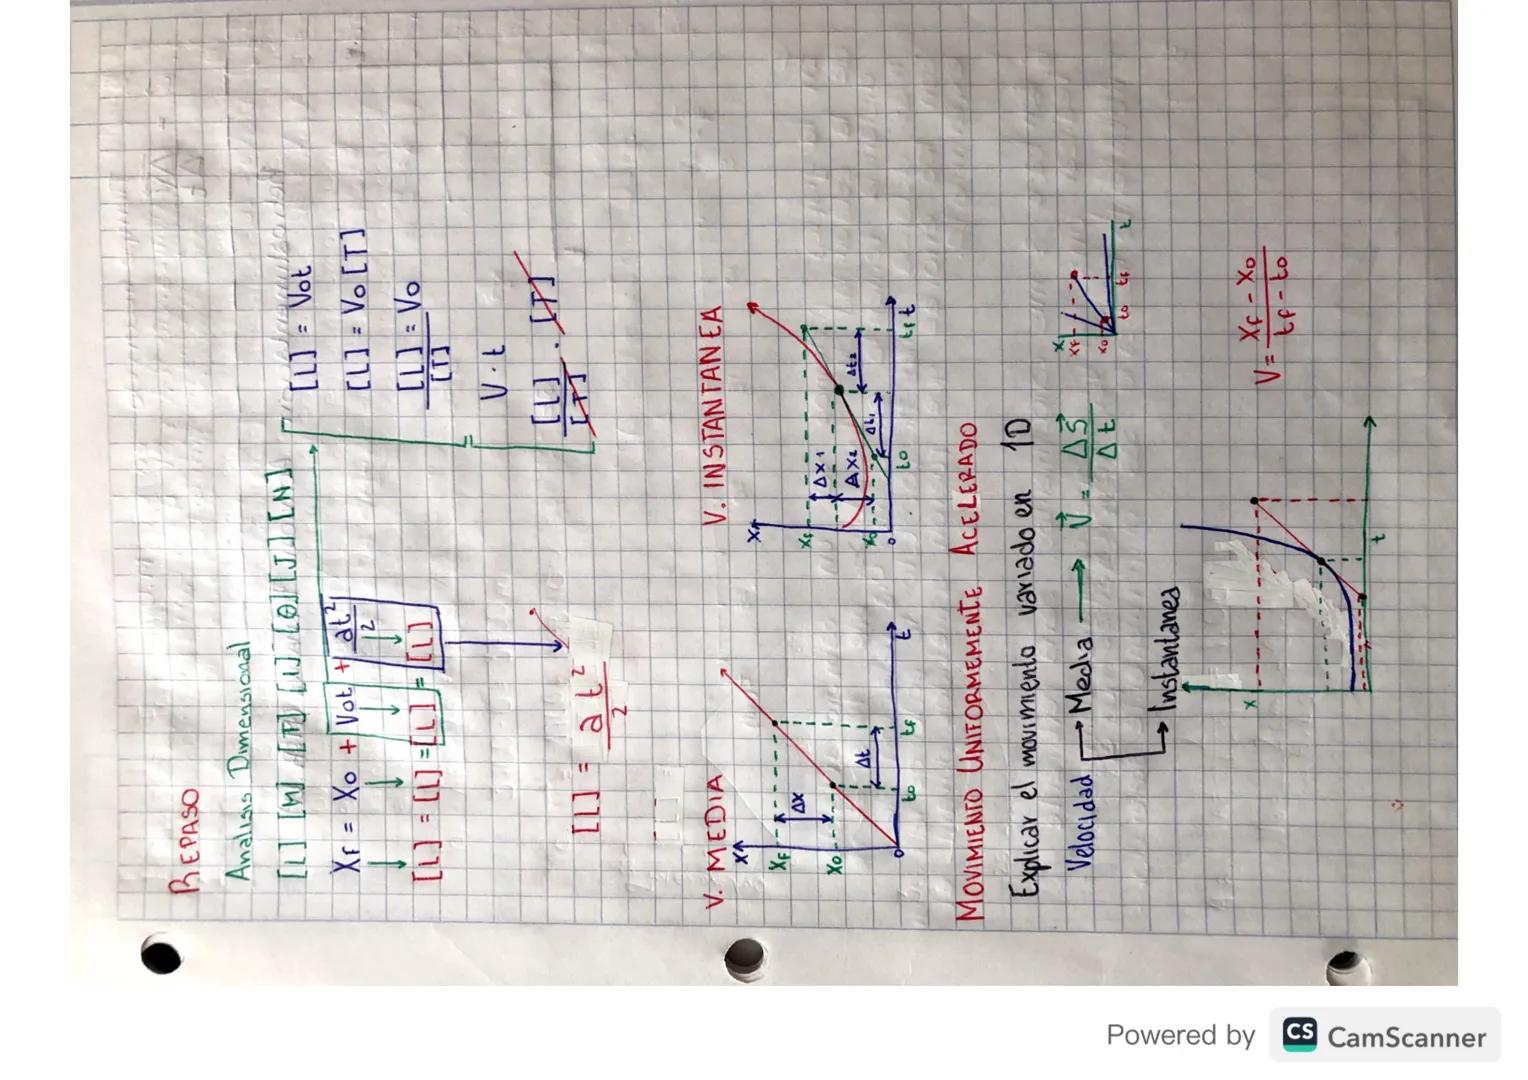 REPASO
Analisis Dimensional
[L] [M] [T] [I] [θ] [J] [N]
XF = Xo + Vot + at²/2
[L] = [L] = [L] = [L]
[L] = Vot
[L] = Vo [T]
[L]/[T] = Vo
V · t
[L]/[T] · [T]
[L] = at²/2
V. MEDIA
X
XF
Δx
Xo
Δt
o
to
tF
t
V. INSTANTANEA
X
XF
Δx1
Δx2
Xo
Δt1
Δt2
o
to
tF
t
MOVIMIENTO UNIFORMEMENTE ACELERADO
Explicar el movimiento variado en 1D
Velocidad → Media → V⃗ = ΔS⃗/Δt
→ Instantanea
X
XF
Xo
to
tF
t
X
t
V = XF - Xo / tF - to
Powered by CS CamScanner